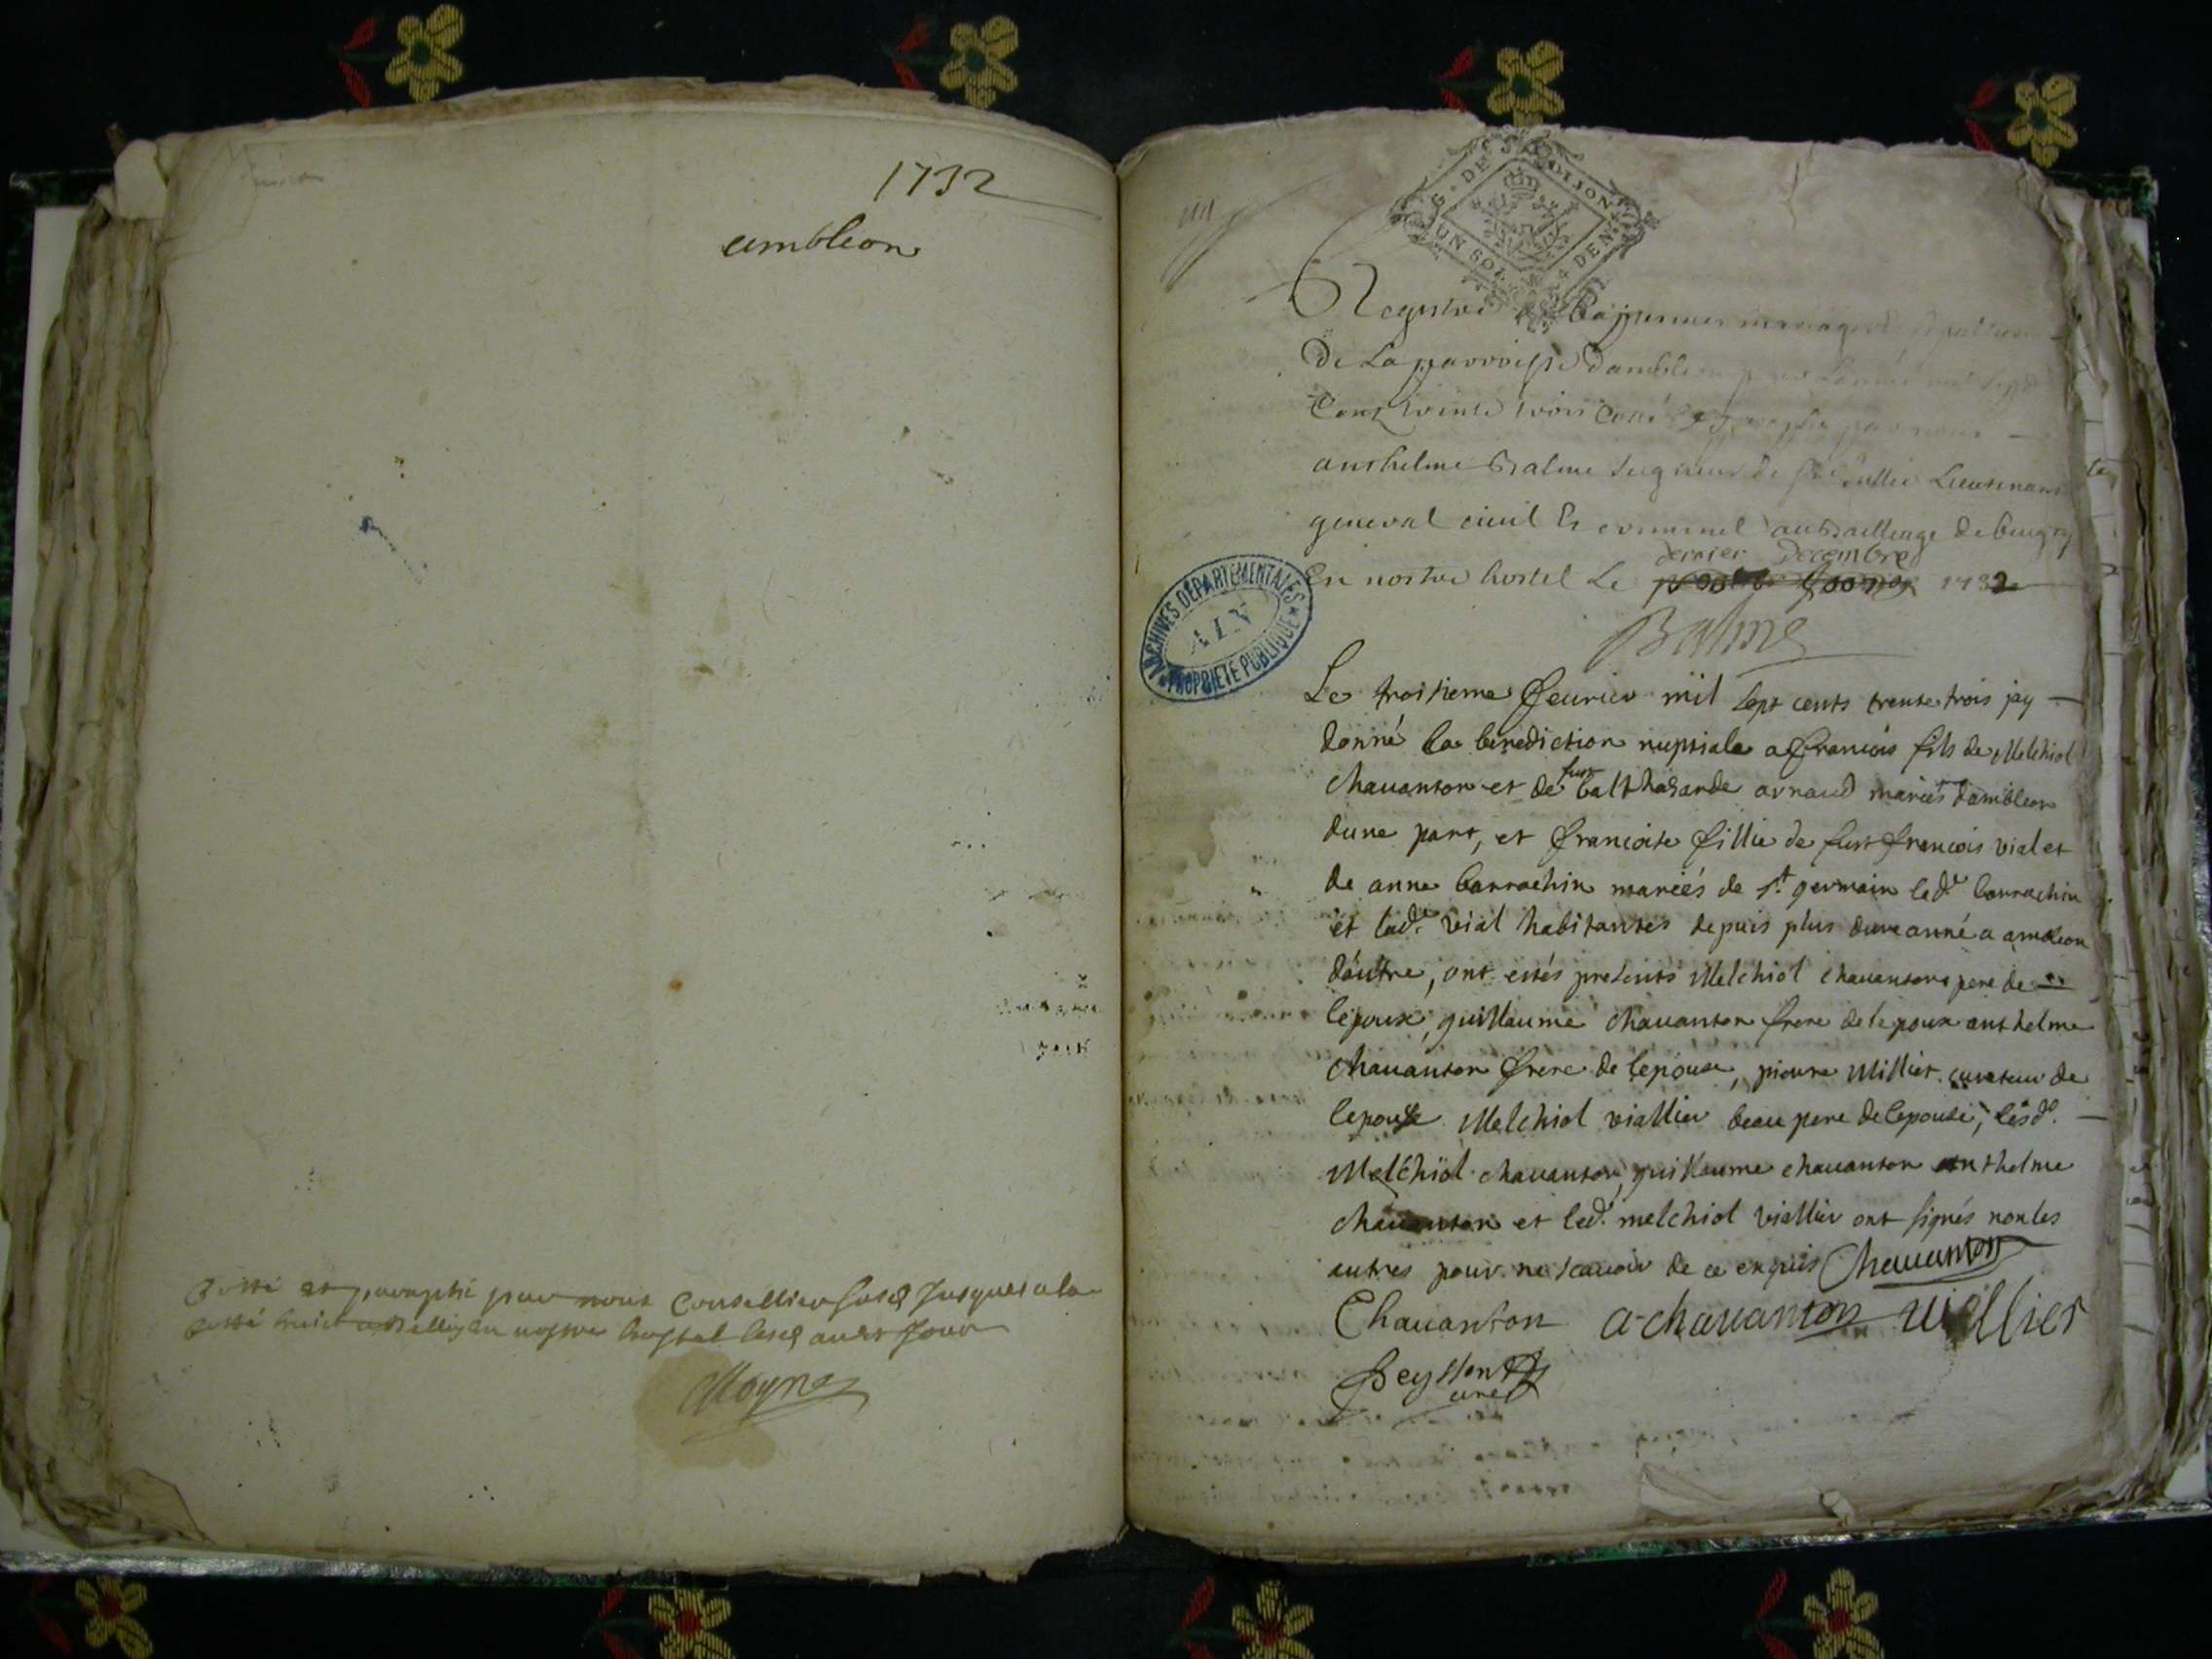 1732
ambleon
Cotté et paraphé par nous Conseillier susd jusques a la
cotté huict a Belley en nostre hostel lesd an et jour
Moyne
G. DE DIJON
UN SOL 4 DEN
Registre de Baptesmes mariages et sepultures
De La parroisse Dambleon pour Lannée mil sept
Cent trente trois Cotté et paraphé par nous
anthelme Balme seigneur de Ste Jullie Lieutenant
general civil et criminel au Bailliage de bugey
dernier Decembre
En nostre hostel Le 1732
Balme
ARCHIVES DÉPARTEMENTALES
AIN
PROPRIÉTÉ PUBLIQUE
Le troisieme feurier mil sept cents trente trois jay
donné la benediction nuptiale a francois fils de Melchiol
fue
chauanton et de balthasarde arnaud mariés dambleon
dune part, et francoise fillie de fust francois vial et
de anne barrachin mariés de st germain lad.e barrachin
et lad.e vial habitantes depuis plus dune anné a ambleon
dautre, ont estés presents Melchiol chauanton pere de
lepoux, guillaume chauanton frere de lepoux anthelme
chauanton frere de lepoux, pierre Millier curateur de
lepouse Melchiol viallier beau pere de lepouse, lesd.
Melchiol chauanton, guillaume chauanton anthelme
chauanton et led. melchiol viallier ont signés non les
autres pour ne scauoir de ce enquis Chauanton
Chauanton a-chauanton uiallier
Peysson
curé